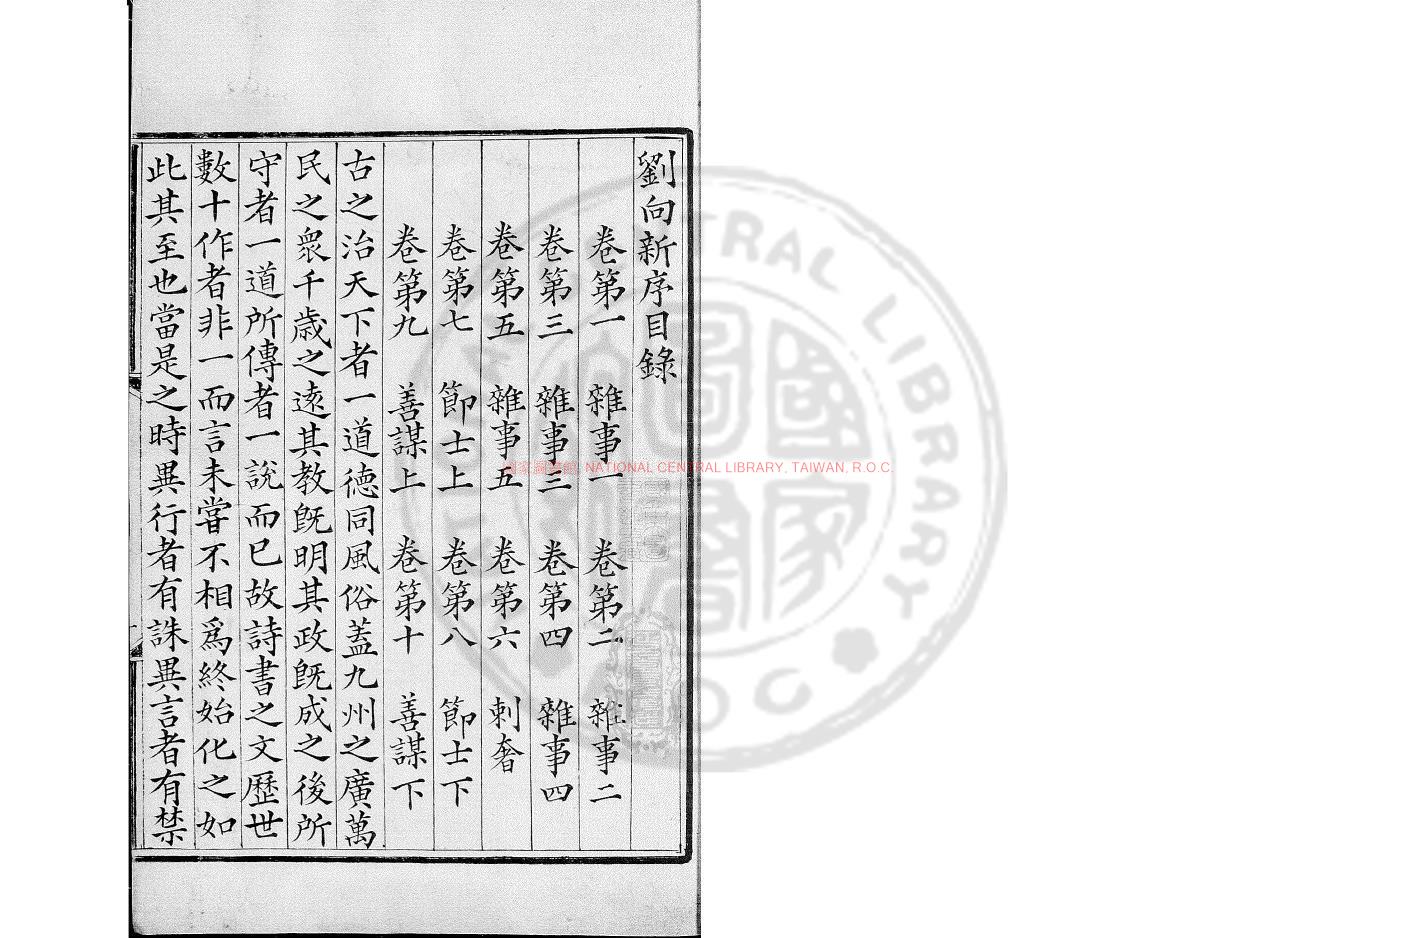 劉向新序目錄
卷第一　雜事一　卷第二　雜事二
卷第三　雜事三　卷第四　雜事四
卷第五　雜事五　卷第六　刺奢
卷第七　節士上　卷第八　節士下
卷第九　善謀上　卷第十　善謀下
古之治天下者一道德同風俗蓋九州之廣萬
民之衆千歳之遠其教旣明其政旣成之後所
守者一道所傳者一說而已故詩書之文歷世
數十作者非一而言未嘗不相爲終始化之如
此其至也當是之時異行者有誅異言者有禁
國家圖書館, NATIONAL CENTRAL LIBRARY, TAIWAN, R.O.C.